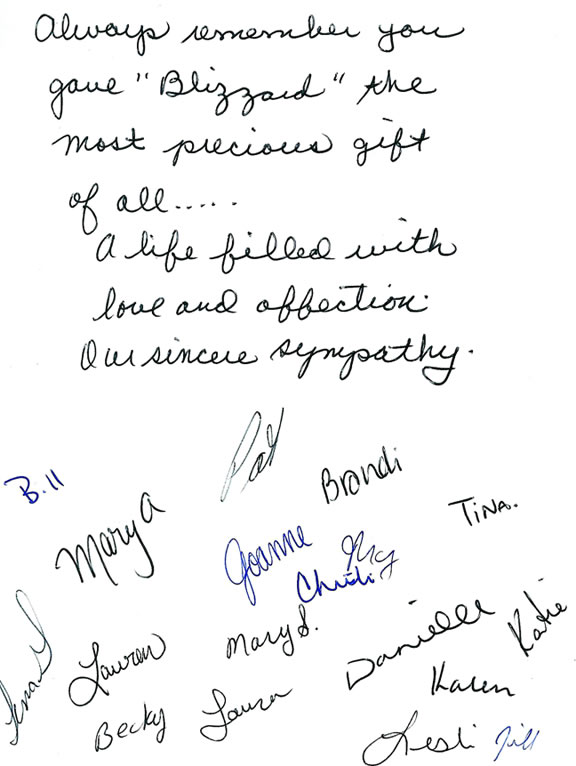 Always remember you
gave "Blizzard" the
most precious gift
of all.....
A life filled with
love and affection.
Our sincere sympathy.
Pat
Bill
Brandi
Mary A
Tina.
Joanne
Christi
Mary S.
Danielle
Katie
Lauren
Karen
Becky
Laura
Lesli
Jill